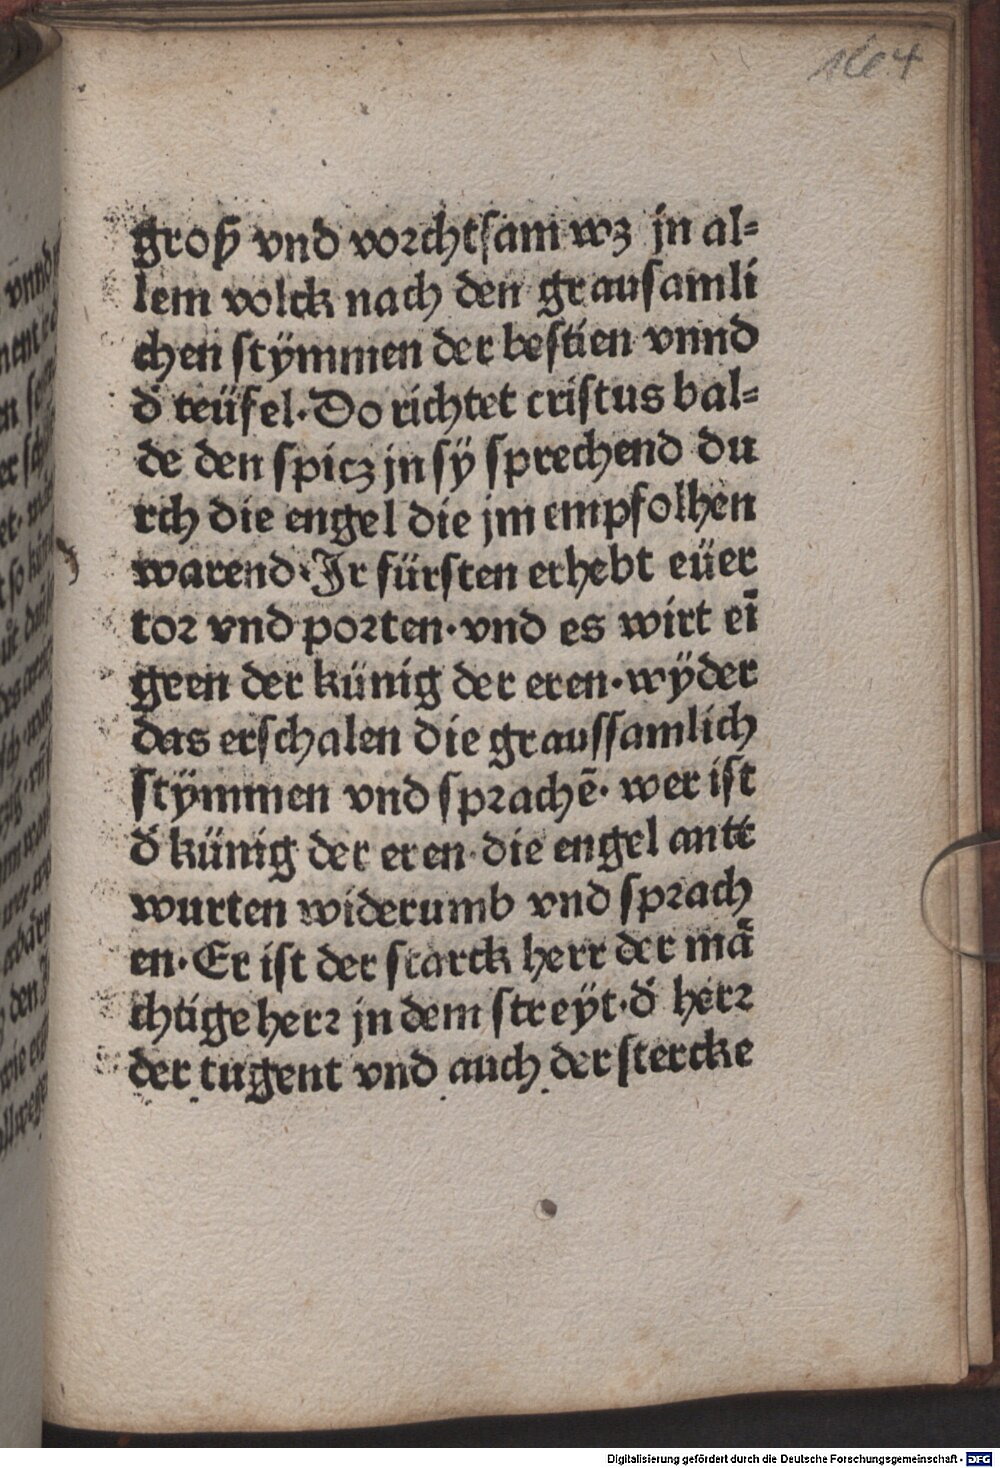 1664
groß vnd vorchtsam wz jn al=
lem volck nach den grausamli
chen stÿmmen der bestien vnnd
d̕ teüfel. Do richtet cristus bal=
de den spicz jn sÿ sprechend du
rch die engel die jm empfolhen
warend. Jr fürsten erhebt eüer
tor vnd porten. vnd es wirt eī
geen der künig der eren. wÿder
das erschalen die graussamlich
stÿmmen vnd sprachē. wer ist
d̕ künig der eren. die engel antt
wurten widerumb vnd sprach
en. Er ist der starck herr der mā
chtige herr jn dem streÿt. d̕ herr
der tugent vnd auch der stercke
Digitalisierung gefördert durch die Deutsche Forschungsgemeinschaft - DFG